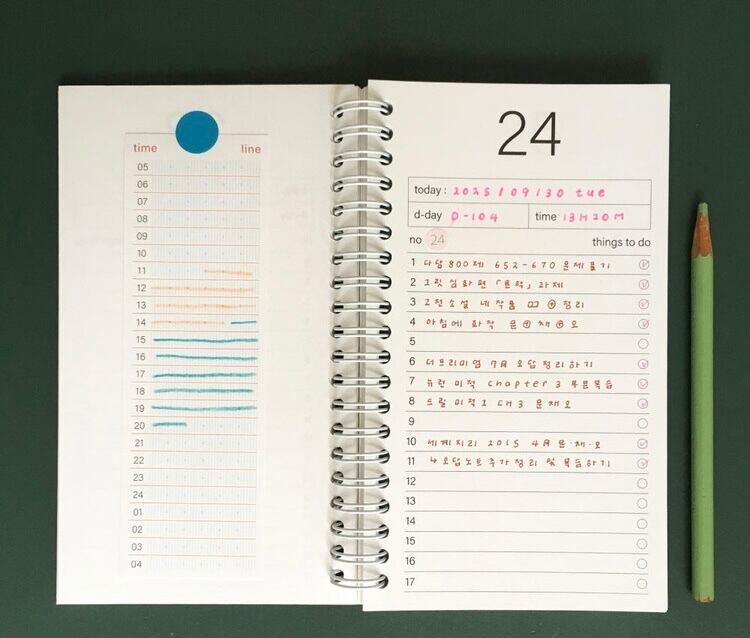 time line
05
06
07
08
09
10
11
12
13
14
15
16
17
18
19
20
21
22
23
24
01
02
03
04
24
today : 2025 / 09 / 30 tue
d-day D-104 time 13H20M
no 24 things to do
1 다담 800제 652-670 문제풀기
2 그릿 심화편 「문학」 과제
3 고전소설 네 작품 정리
4 아침에 화작
5
6 더프리미엄 7月 오답정리하기
7 뉴런 미적 chapter 3 부분복습
8 드릴 미적 I CH3 문채오
9
10 세계지리 2015 4月 문·채·오
11 4 오답노트 추가정리 및 복습하기
12
13
14
15
16
17